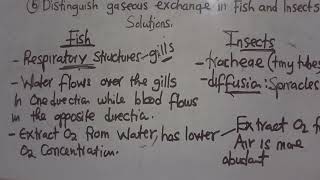 ⑥ Distinguish gaseous exchange in Fish and Insects
Solutions.
Fish
- Respiratory Structures - gills
- Water flows over the gills
in one direction while blood flows
in the opposite direction.
- Extract O2 from Water, has lower
O2 Concentration.
Insects
- tracheae (tiny tubes
- diffusion: Spiracles
- Extract O2 f
Air is more
abundant